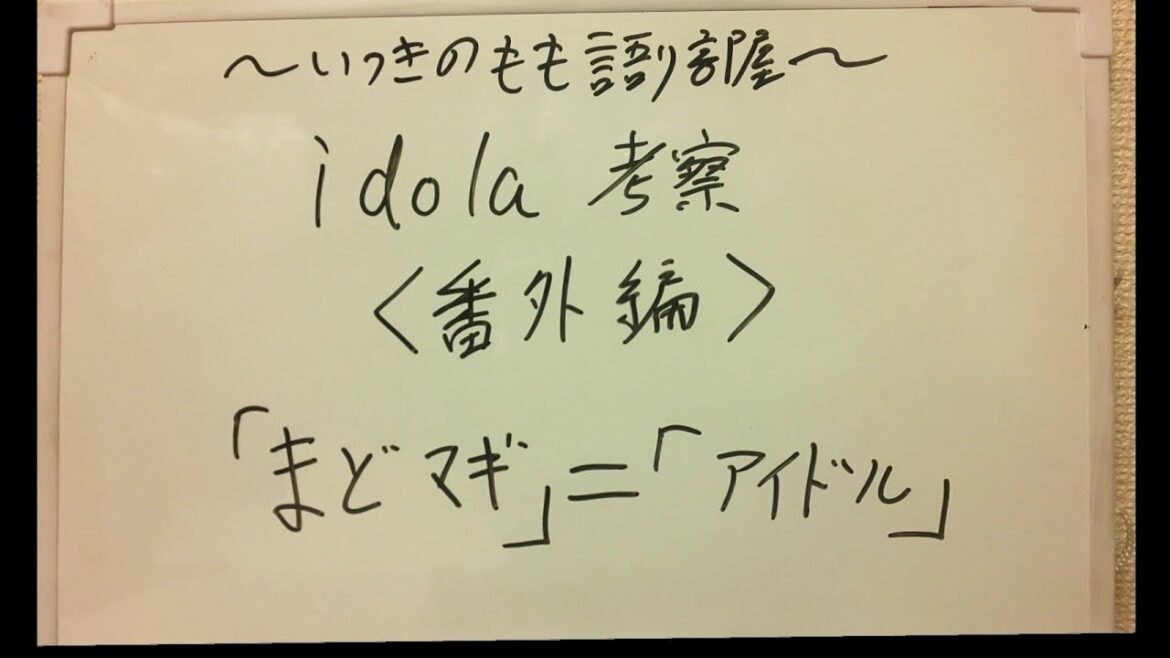 〜いつきのもも語り部屋〜
idola 考察
＜番外編＞
「まどマギ」＝「アイドル」